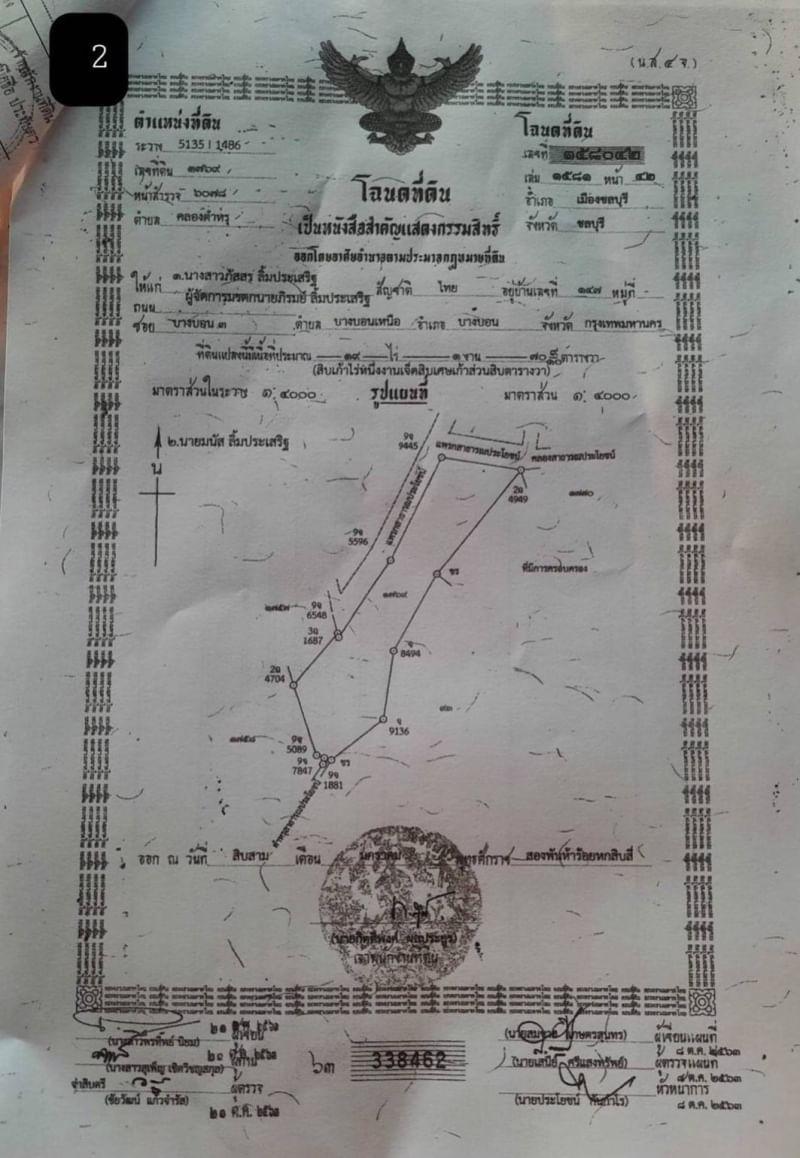 2
(น.ส.๔ จ.)
ตำแหน่งที่ดิน
ระวาง 5135 I 1486
เลขที่ดิน ๑๗๖๙
หน้าสำรวจ ๖๐๗๘
ตำบล คลองตำหรุ
โฉนดที่ดิน
เลขที่ ๑๕๘๐๔๒
เล่ม ๑๕๘๑ หน้า ๔๒
อำเภอ เมืองชลบุรี
จังหวัด ชลบุรี
โฉนดที่ดิน
เป็นหนังสือสำคัญแสดงกรรมสิทธิ์
ออกโดยอาศัยอำนาจตามประมวลกฎหมายที่ดิน
ให้แก่ ๑.นางสาวภัสสร ลิ้มประเสริฐ สัญชาติ ไทย อยู่บ้านเลขที่ ๑๔๗ หมู่ที่ -
ถนน ผู้จัดการมรดกนายภิรมย์ ลิ้มประเสริฐ
ซอย บางบอน ๓ ตำบล บางบอนเหนือ อำเภอ บางบอน จังหวัด กรุงเทพมหานคร
ที่ดินแปลงนี้มีเนื้อที่ประมาณ ๑๙ ไร่ ๑ งาน ตารางวา
(สิบเก้าไร่หนึ่งงานเจ็ดสิบเศษเก้าส่วนสิบตารางวา)
มาตราส่วนในระวาง ๑: ๔๐๐๐ รูปแผนที่ มาตราส่วน ๑: ๔๐๐๐
๒.นายมนัส ลิ้มประเสริฐ
น
9จ
9445
แพรกสาธารณประโยชน์
คลองสาธารณประโยชน์
2ฉ
4949
๑๗๗๐
แพรกสาธารณประโยชน์
9จ
5596
ที่มีการครอบครอง
ชร
๑๗๖๙
๒๗๕๗
9จ
6548
3ฉ
1687
8494
2ฉ
4704
๙๓
9136
๑๗๕๘
9จ
5089
9จ
7847
ชร
9จ
1881
ออก ณ วันที่ สิบสาม เดือน มกราคม พุทธศักราช สองพันห้าร้อยหกสิบสี่
เจ้าพนักงานที่ดิน
ผู้เขียน
ผู้ตรวจ
จ่าสิบตรี
(ชัยวัฒน์ แก้วจำรัส)
๒๑ ต.ค. ๒๕๖๓
๖๓
338462
ผู้เขียนแผนที่
๘ ต.ค. ๒๕๖๓
(นายเสนีย์ ศรีแสงทรัพย์) ผู้ตรวจแผนที่
๘ ต.ค. ๒๕๖๓
หัวหน้าการ
๘ ต.ค. ๒๕๖๓